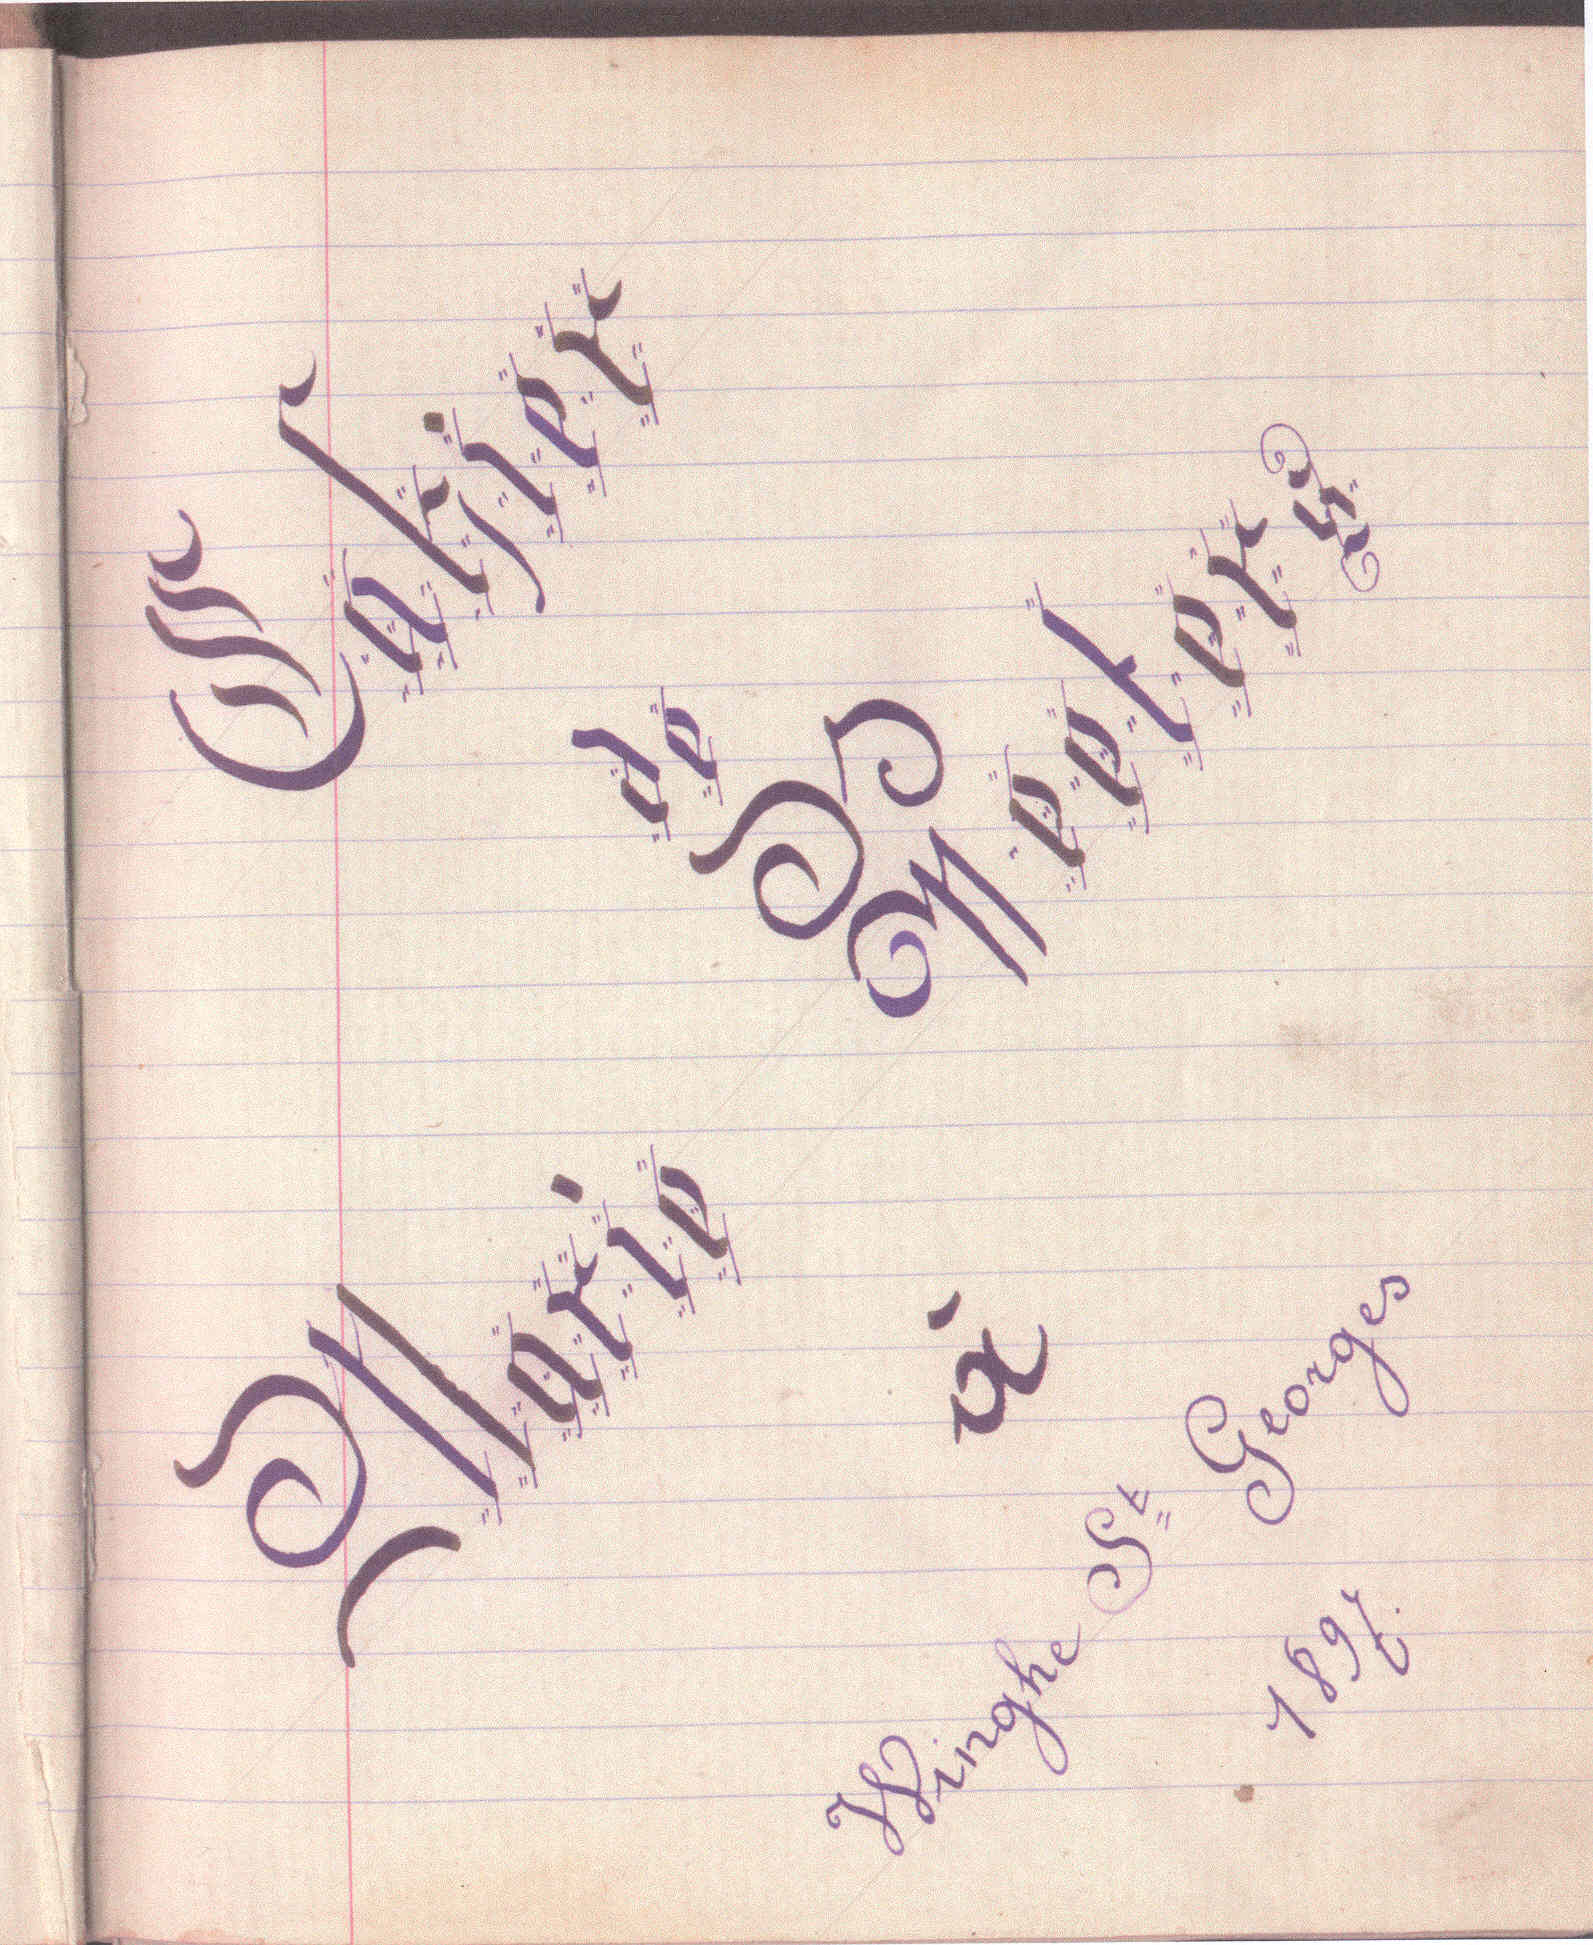 Cahier
de
Marie Peeters
à
Winghe St Georges
1897.